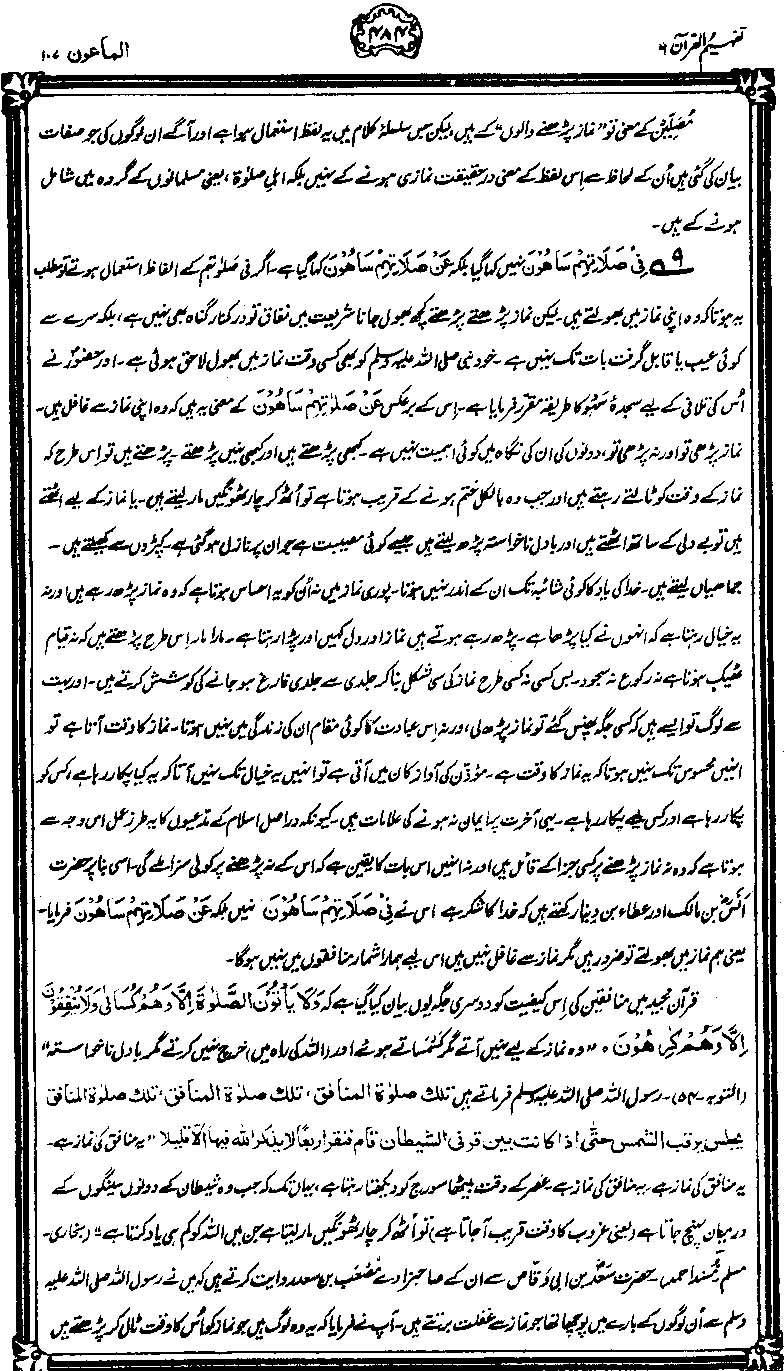 تفہیم القرآن ۶
۴۸۴
الماعون ۱۰۷
مُصَلِّیْن کے معنی تو ”نماز پڑھنے والوں“ کے ہیں، لیکن جس سلسلۂ کلام میں یہ لفظ استعمال ہوا ہے اور آگے ان لوگوں کی جو صفات
بیان کی گئی ہیں اُن کے لحاظ سے اِس لفظ کے معنی درحقیقت نمازی ہونے کے نہیں بلکہ اہلِ صلوٰۃ، یعنی مسلمانوں کے گروہ میں شامل
ہونے کے ہیں۔
۹ فِیْ صَلَاتِہِمْ سَاھُوْنَ نہیں کہا گیا بلکہ عَنْ صَلَاتِہِمْ سَاھُوْنَ کہا گیا ہے۔ اگر فی صلوٰتہم کے الفاظ استعمال ہوتے تو مطلب
یہ ہوتا کہ وہ اپنی نماز میں بھولتے ہیں۔ لیکن نماز پڑھتے پڑھتے کچھ بھول جانا شریعت میں نفاق تو درکنار گناہ بھی نہیں ہے، بلکہ سرے سے
کوئی عیب یا قابلِ گرفت بات تک نہیں ہے۔ خود نبی صلی اللہ علیہ وسلم کو بھی کسی وقت نماز میں بھول لاحق ہوئی ہے۔ اور حضورؐ نے
اُس کی تلافی کے لیے سجدۂ سہو کا طریقہ مقرر فرمایا ہے۔ اِس کے برعکس عَنْ صَلٰوتِہِمْ سَاھُوْنَ کے معنی یہ ہیں کہ وہ اپنی نماز سے غافل ہیں۔
نماز پڑھی تو اور نہ پڑھی تو، دونوں کی ان کی نگاہ میں کوئی اہمیت نہیں ہے۔ کبھی پڑھتے ہیں اور کبھی نہیں پڑھتے۔ پڑھتے ہیں تو اِس طرح کہ
نماز کے وقت کو ٹالتے رہتے ہیں اور جب وہ بالکل ختم ہونے کے قریب ہوتا ہے تو اُٹھ کر چار ٹھونگیں مار لیتے ہیں۔ یا نماز کے لیے اٹھتے
ہیں تو بے دلی کے ساتھ اٹھتے ہیں اور بادلِ ناخواستہ پڑھ لیتے ہیں جیسے کوئی مصیبت ہے جو ان پر نازل ہو گئی ہے۔ کپڑوں سے کھیلتے ہیں۔
جماہیاں لیتے ہیں۔ خدا کی یاد کا کوئی شائبہ تک ان کے اندر نہیں ہوتا۔ پوری نماز میں نہ اُن کو یہ احساس ہوتا ہے کہ وہ نماز پڑھ رہے ہیں اور نہ
یہ خیال رہتا ہے کہ انہوں نے کیا پڑھا ہے۔ پڑھ رہے ہوتے ہیں نماز اور دل کہیں اور پڑا رہتا ہے۔ مارا مار اِس طرح پڑھتے ہیں کہ نہ قیام
ٹھیک ہوتا ہے نہ رکوع نہ سجود۔ بس کسی نہ کسی طرح نماز کی سی شکل بنا کر جلدی سے جلدی فارغ ہو جانے کی کوشش کرتے ہیں۔ اور بہت
سے لوگ تو ایسے ہیں کہ کسی جگہ پھنس گئے تو نماز پڑھ لی، ورنہ اِس عبادت کا کوئی مقام ان کی زندگی میں نہیں ہوتا۔ نماز کا وقت آتا ہے تو
انہیں محسوس تک نہیں ہوتا کہ یہ نماز کا وقت ہے۔ مؤذن کی آواز کان میں آتی ہے تو انہیں یہ خیال تک نہیں آتا کہ یہ کیا پکار رہا ہے، کس کو
پکار رہا ہے اور کس لیے پکار رہا ہے۔ یہی آخرت پر ایمان نہ ہونے کی علامات ہیں۔ کیونکہ دراصل اسلام کے مدعیوں کا یہ طرزِ عمل اس وجہ سے
ہوتا ہے کہ وہ نہ نماز پڑھنے پر کسی جزا کے قائل ہیں اور نہ انہیں اس بات کا یقین ہے کہ اس کے نہ پڑھنے پر کوئی سزا ملے گی۔ اسی بنا پر حضرت
اَنَسؓ بن مالک اور عطاء بن دینار کہتے ہیں کہ خدا کا شکر ہے اس نے فِیْ صَلَاتِہِمْ سَاھُوْنَ نہیں بلکہ عَنْ صَلَاتِہِمْ سَاھُوْنَ فرمایا۔
یعنی ہم نماز میں بھولتے تو ضرور ہیں مگر نماز سے غافل نہیں ہیں اس لیے ہمارا شمار منافقوں میں نہیں ہوگا۔
قرآن مجید میں منافقین کی اِس کیفیت کو دوسری جگہ یوں بیان کیا گیا ہے کہ وَلَا یَاْتُوْنَ الصَّلٰوۃَ اِلَّا وَھُمْ کُسَالٰی وَلَا یُنْفِقُوْنَ
اِلَّا وَھُمْ کٰرِھُوْنَ ۰ ”وہ نماز کے لیے نہیں آتے مگر کسمساتے ہوئے اور (اللہ کی راہ میں) خرچ نہیں کرتے مگر بادلِ ناخواستہ“
(التوبہ۔۵۴)۔ رسول اللہ صلی اللہ علیہ وسلم فرماتے ہیں تلک صلوٰۃ المنافق، تلک صلوٰۃ المنافق، تلک صلوٰۃ المنافق
یجلس یرقب الشمس حتّٰی اذا کانت بین قرنی الشیطان قام فنقر اربعًا لا یذکر اللہ فیہا الّا قلیلا ”یہ منافق کی نماز ہے۔
یہ منافق کی نماز ہے، یہ منافق کی نماز ہے۔ عصر کے وقت بیٹھا سورج کو دیکھتا رہتا ہے، یہاں تک کہ جب وہ شیطان کے دونوں سینگوں کے
درمیان پہنچ جاتا ہے (یعنی غروب کا وقت قریب آجاتا ہے) تو اُٹھ کر چار ٹھونگیں مار لیتا ہے جن میں اللہ کو کم ہی یاد کرتا ہے“ (بخاری۔
مسلم، مُسند احمد)۔ حضرت سعدؓ بن ابی وَقّاص سے ان کے صاحبزادے مُصْعَب بن سعد روایت کرتے ہیں کہ میں نے رسول اللہ صلی اللہ علیہ
وسلم سے اُن لوگوں کے بارے میں پوچھا تھا جو نماز سے غفلت برتتے ہیں۔ آپ نے فرمایا کہ یہ وہ لوگ ہیں جو نماز کو اُس کا وقت ٹال کر پڑھتے ہیں